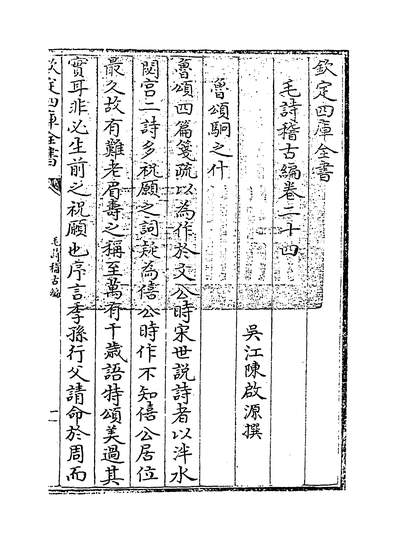 欽定四庫全書
毛詩稽古編卷二十四
吳江陳啟源撰
魯頌駉之什
魯頌四篇箋疏以為作於文公時宋世說詩者以泮水
閟宫二詩多祝願之詞疑為僖公時作不知僖公居位
最久故有難老眉壽之稱至萬有千歲語特頌美過其
實耳非必生前之祝願也序言季孫行父請命於周而
欽定四庫全書
毛詩稽古編
一